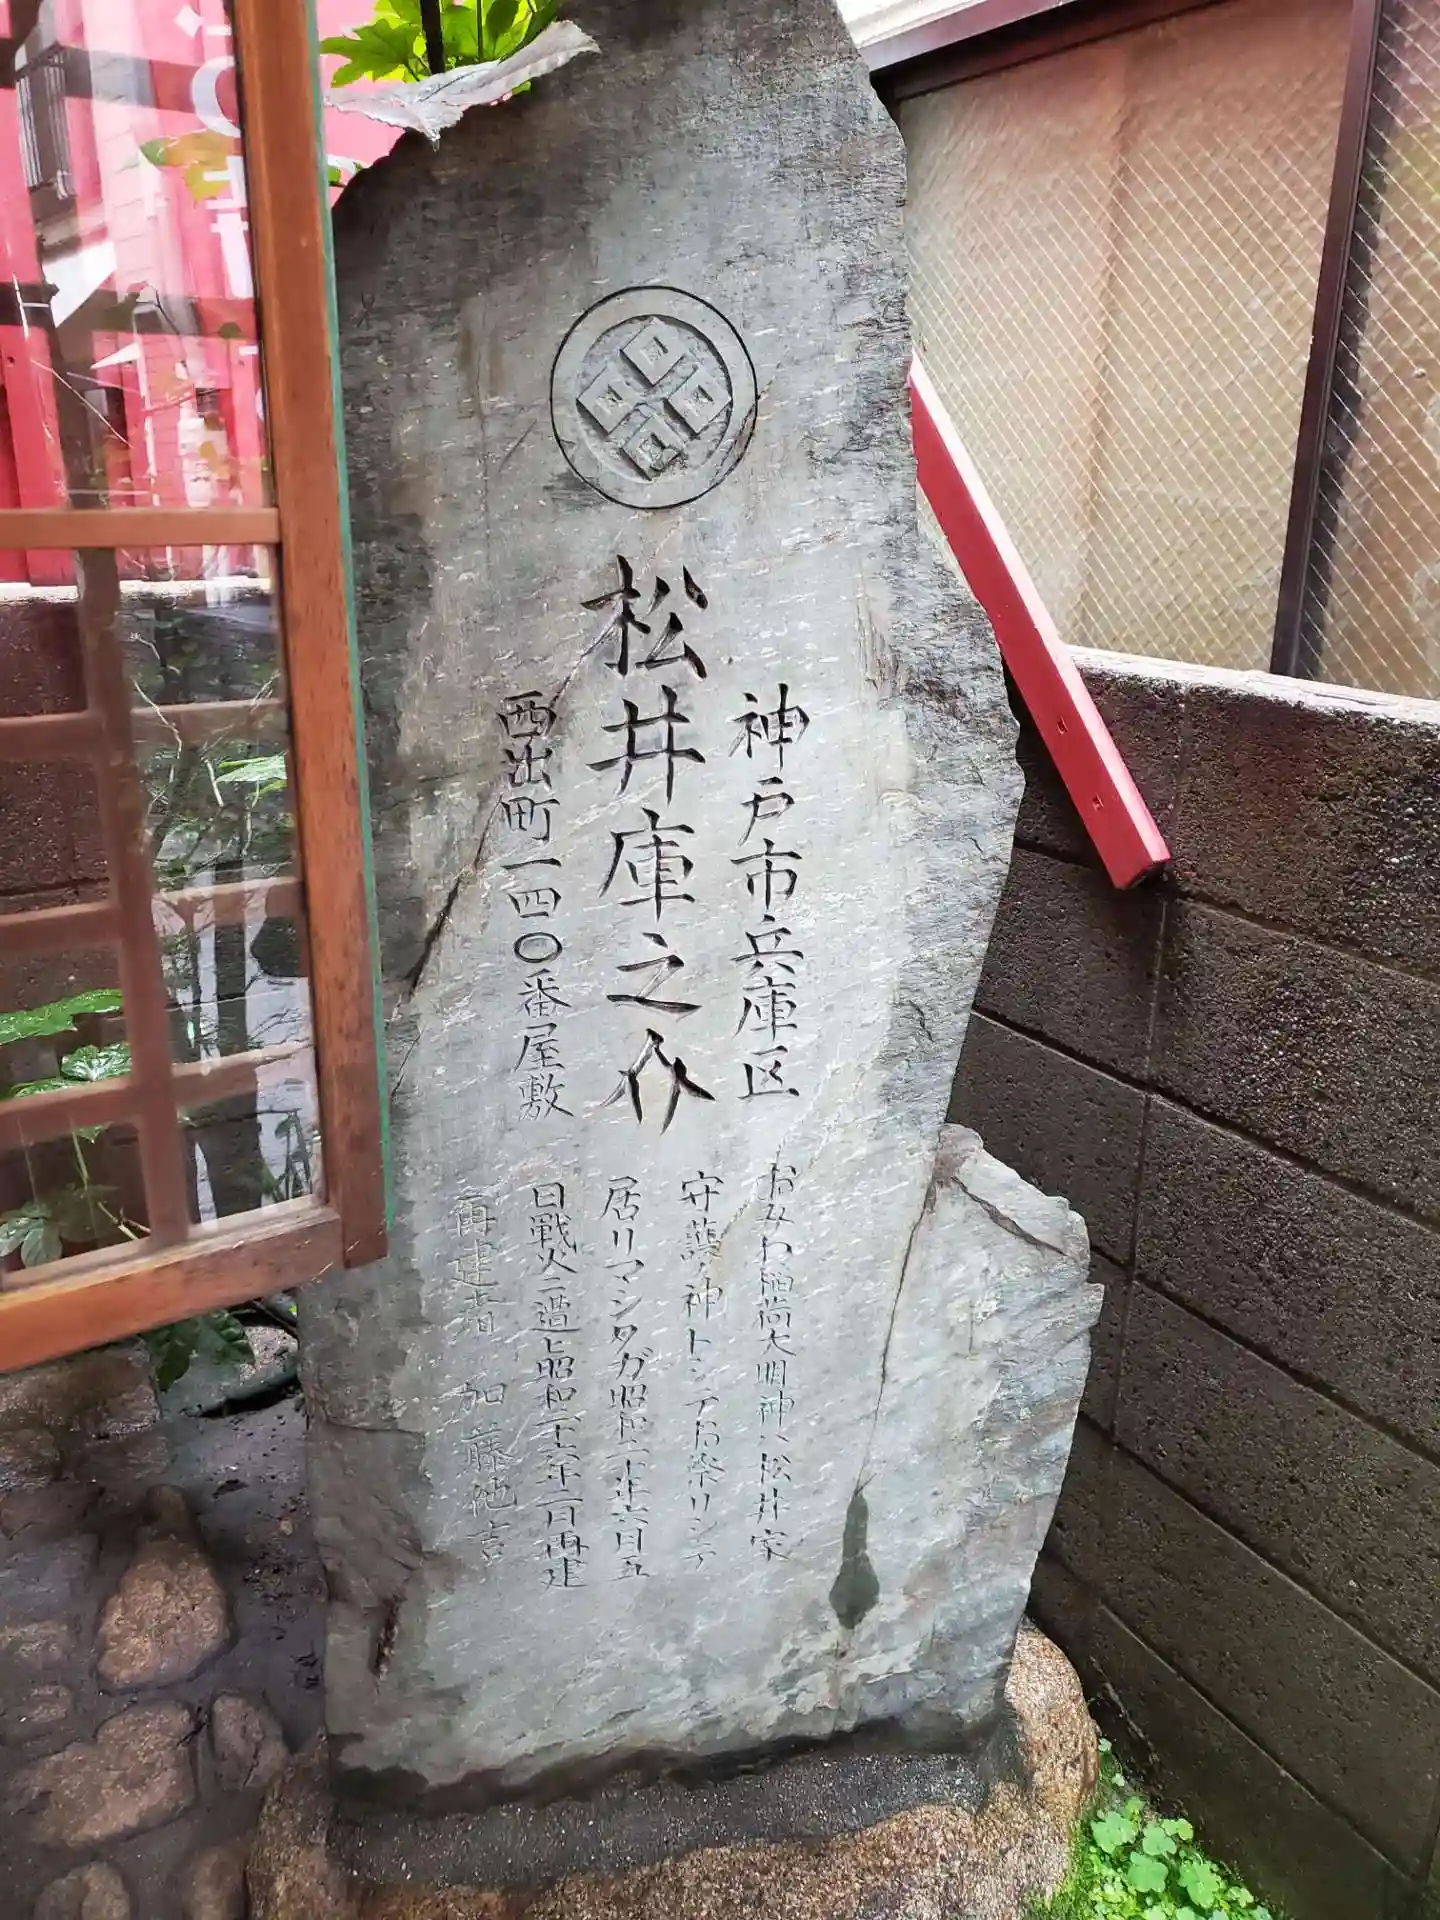 神戸市兵庫区
松井庫之介
西出町一四〇番屋敷
稲荷大明神ハ松井家
守護ノ神トシテお祭リシテ
居リマシタガ昭和二十年六月五
日戦火ニ遭上昭和二十六年一月再建
再建者 加藤他吉